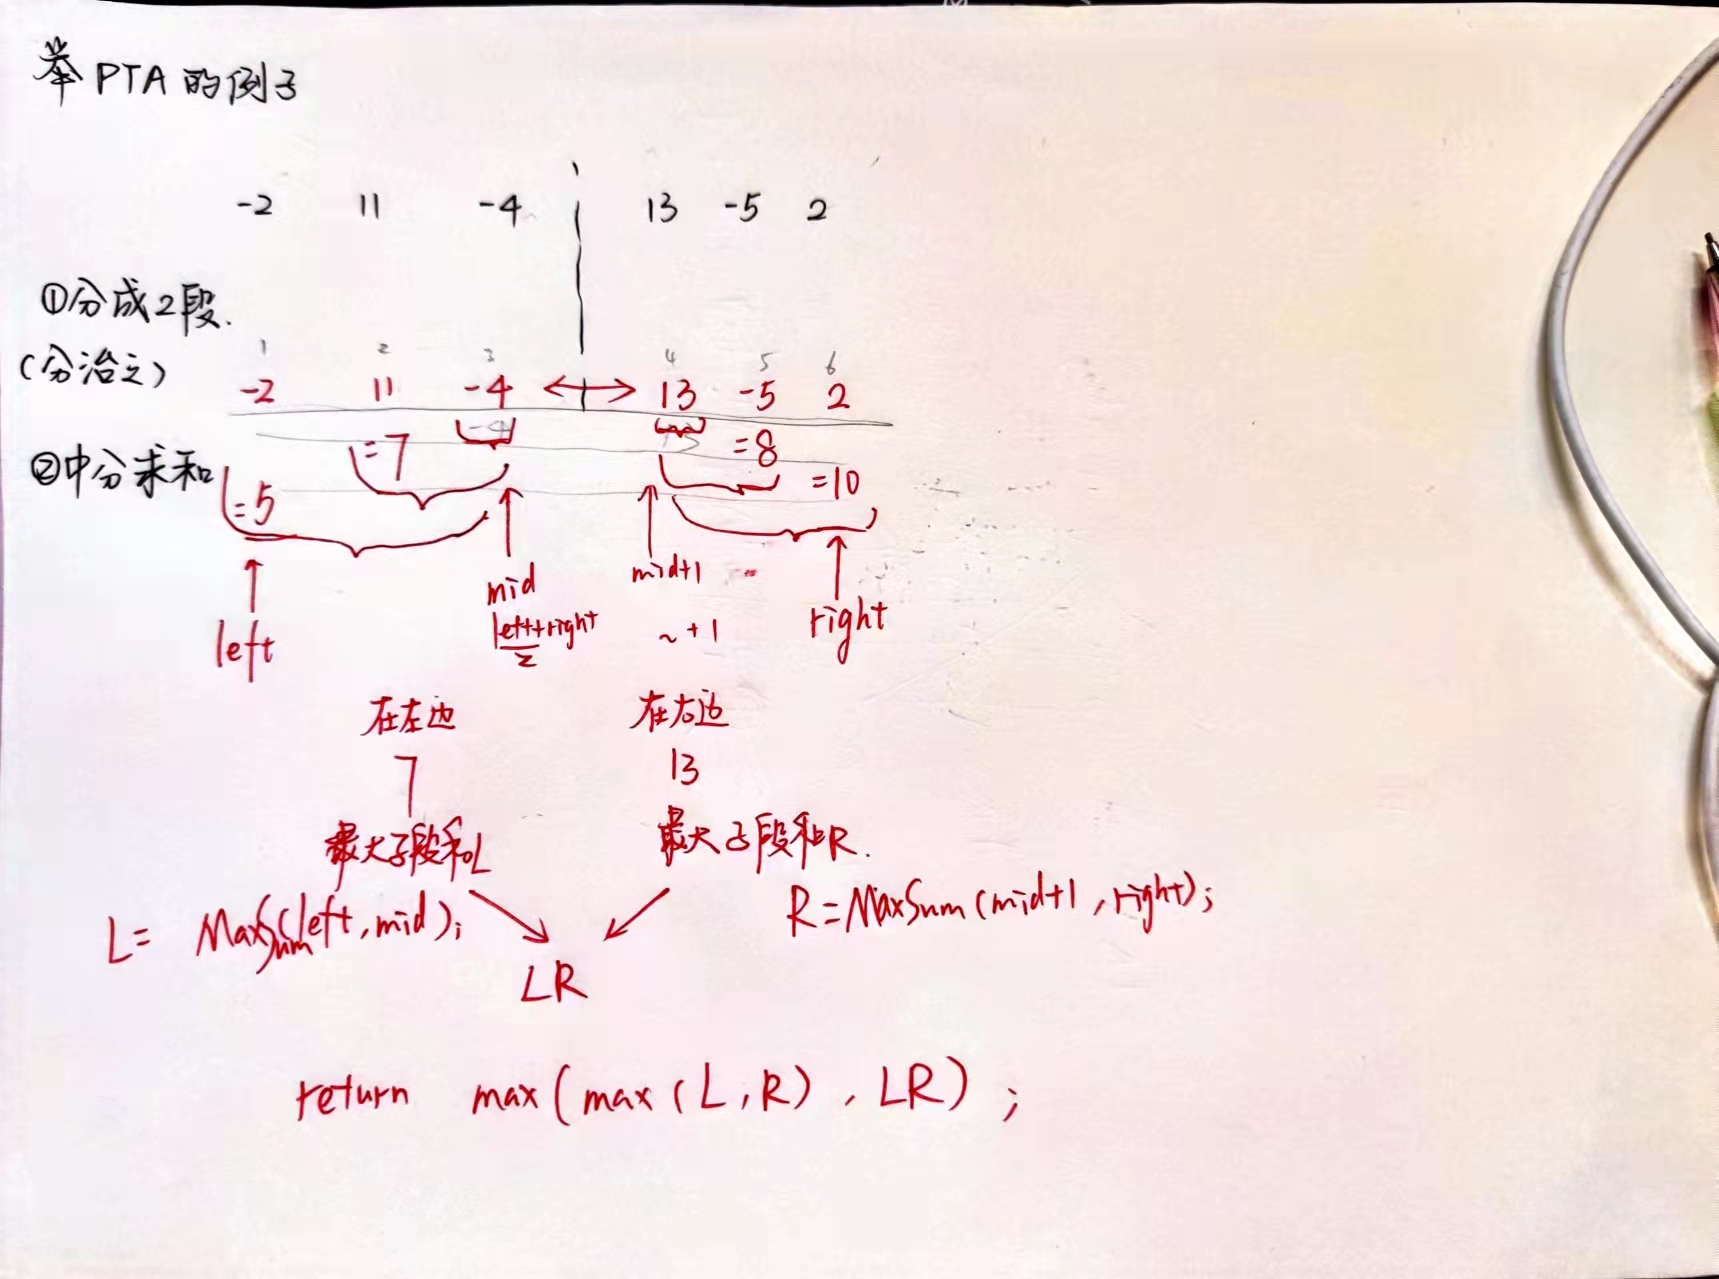 举PTA的例子
-2 11 -4 13 -5 2
①分成2段.
(分治之)
1 2 3 4 5 6
-2 11 -4 13 -5 2
-4 13
=7 =8
②中分求和
=5 =10
mid mid+1
left+right
2
~+1
left right
在左边 在右边
7 13
最大子段和L 最大子段和R.
L= MaxSum(left,mid); R=MaxSum(mid+1,right);
LR
return max(max(L,R),LR);